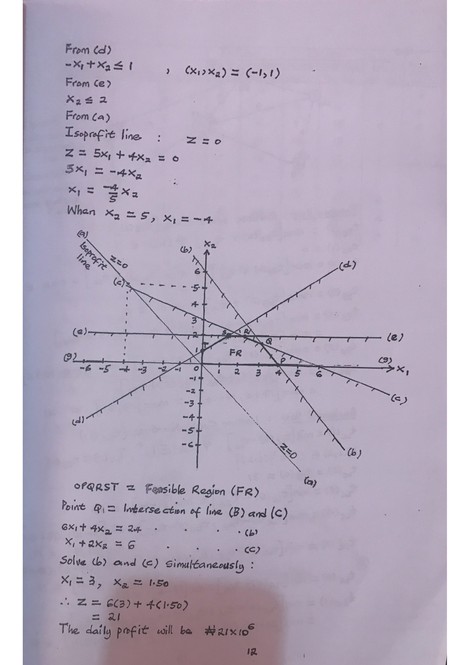 From (d)
-x₁ + x₂ ≤ 1 , (x₁, x₂) = (-1, 1)
From (e)
x₂ ≤ 2
From (a)
Isoprofit line : Z = 0
Z = 5x₁ + 4x₂ = 0
5x₁ = -4x₂
x₁ = -4/5 x₂
When x₂ = 5, x₁ = -4
(a) (b) x₂
Isoprofit line Z=0
6 (d)
(c) 5
4
3
(e) 2 S R (e)
1 T FR Q
(g) -6 -5 -4 -3 -2 -1 0 1 2 3 4 P 5 6 (g) x₁
-1
-2 (c)
-3
(d) -4
-5
-6 Z=0 (b)
(a)
OPQRST = Feasible Region (FR)
Point Q = Intersection of line (B) and (C)
6x₁ + 4x₂ = 24 . . . . (b)
x₁ + 2x₂ = 6 . . . . (c)
Solve (b) and (c) simultaneously :
x₁ = 3, x₂ = 1.50
∴ Z = 6(3) + 4(1.50)
= 21
The daily profit will be ₦21x10⁶
12